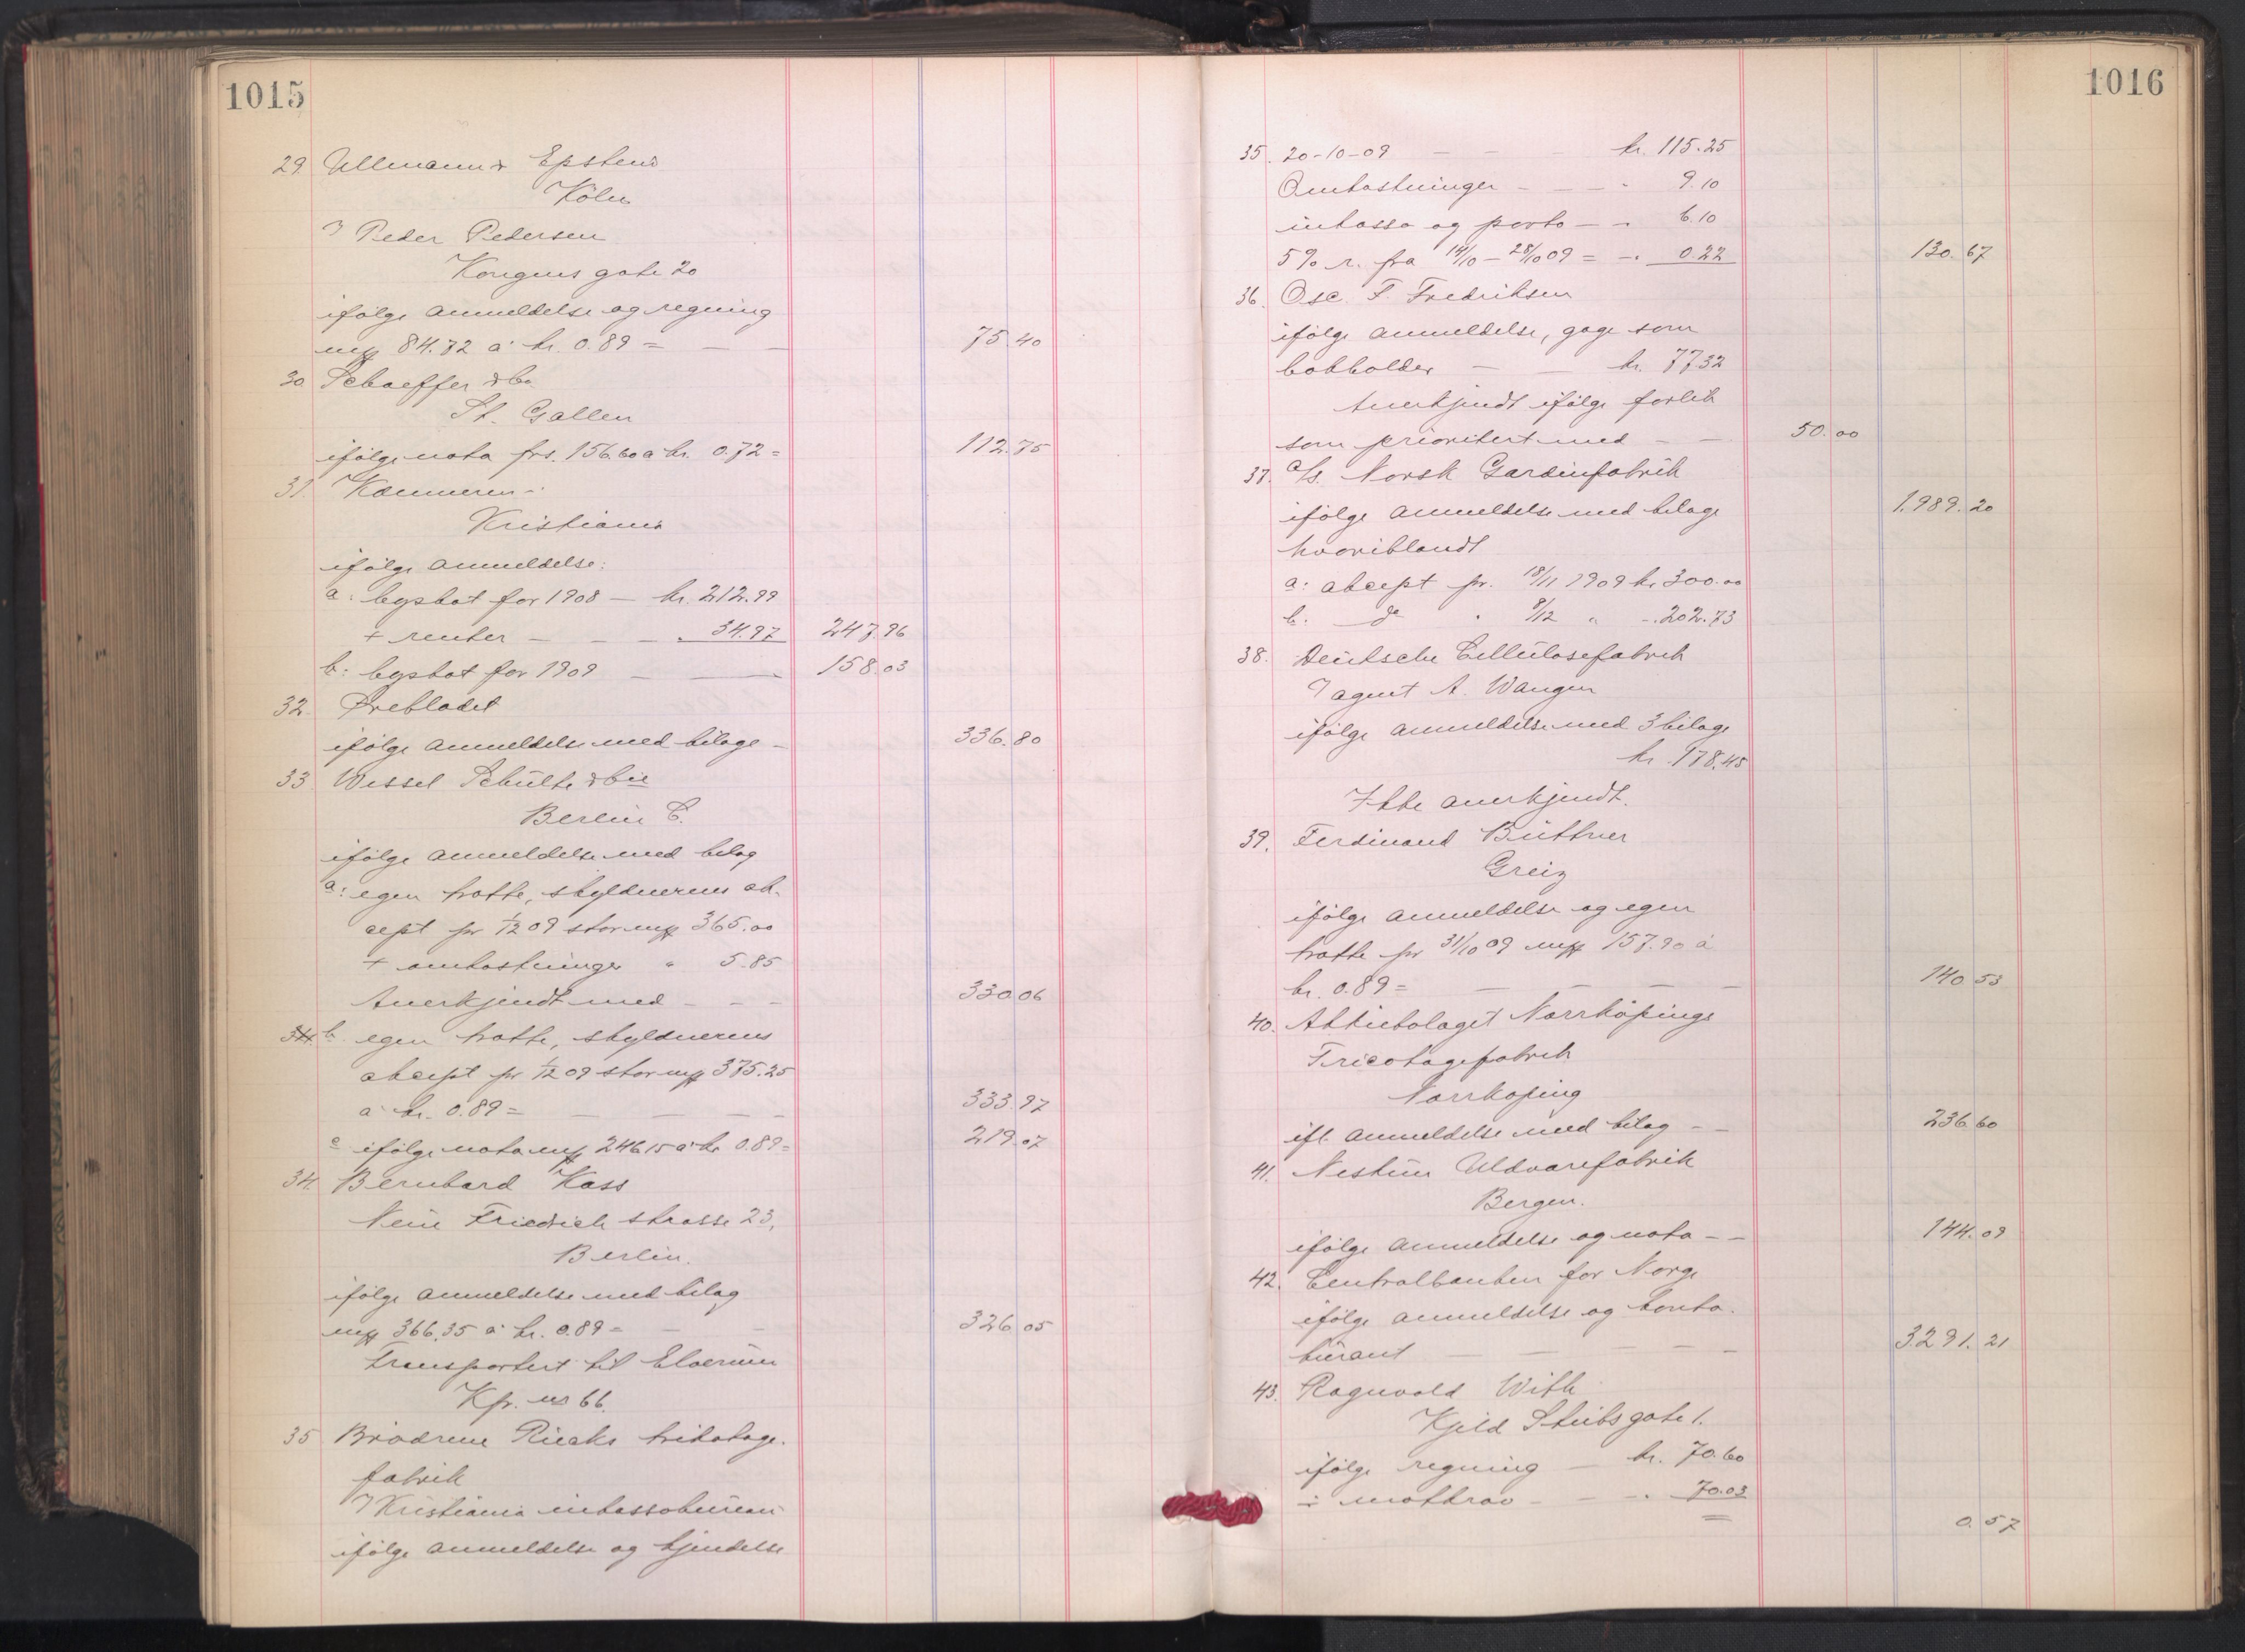 1015
29 Ullmann & Epstein
Köln
v/ Peder Pedersen
Kongens gate 20
ifölge anmeldelse og regning
mk 84.72 a kr. 0.89 = — — 75.40
30 Schaeffer & Co
St. Gallen
ifölge nota frs. 156.60 a kr. 0.72 = 112.75
31 Kæmneren -
Kristiania
ifölge anmeldelse:
a: byskat for 1908 — kr. 212.99
+ renter — — - 34.97 247.96
b: byskat for 1909 — — 158.03
32. Örebladet
ifölge anmeldelse med bilage - 336.80
33 Wessel Schulte & Cie
Berlin C.
ifölge anmeldelse med bilag
a: egen tratte, skyldnerens ak-
cept pr 1/12 09 stor mk 365.00
+ omkostninger " 5.85
Anerkjendt med - - - 330.06
34. b. egen tratte, skyldnerens
akcept pr 1/12 09 stor mk 375.25
a kr. 0.89 = — — — - 333.97
c ifölge nota mk 246.15 a kr 0.89 = 219.07
34. Bernhard Kass
Neue Friedrich strasse 23,
Berlin.
ifölge anmeldelse med bilag
mk 366.35 a kr. 0.89 = — - 326.05
Transportert til
Kp. no 66.
35 Brödrene trikotage-
fabrik
v/ Kristiania inkassobureau
ifölge anmeldelse og kjendelse
1016
35. 20-10-09 — — - kr. 115.25
Omkostninger - — - - 9.10
inkasso og porto — - 6.10
5% r. fra 14/10 - 28/10 09 = -. 0.22 130.67
36. Osc. F. Fredriksen
ifölge anmeldelse, gage som
bokholder — — kr. 77.32
Anerkjendt ifölge forlik
som prioritert med - — 50.00
37. A/S. Norsk Gardinfabrik
ifölge anmeldelse med bilage 1.989.20
hvoriblandt
a: akcept pr. 18/11 1909 kr. 300.00
b. do " 9/12 " -. 202.73
38. Deutsche Cellulosefabrik
v/ agent A. Wangen
ifölge anmeldelse med 3 bilage
kr 178.45
Ikke anerkjendt.
39. Ferdinand Büttner
Greiz
ifölge anmeldelse og egen
tratte pr 31/10 09 mk 157.90 a
kr. 0.89 = — — — - 140.53
40. Aktiebolaget Norrköpings
Tricotagefabrik
Norrköping
ifl. anmeldelse med bilag - — 236.60
41. Nestun Uldvarefabrik
Bergen.
ifölge anmeldelse og nota - — 144.09
42. Centralbanken for Norge
ifölge anmeldelse og konto-
kurant — — — — - 3.291.21
43. Ragnvald With
Kjeld Stubsgate 1.
ifölge regning — kr. 70.60
÷ motkrav - — -. 70.03
0.57